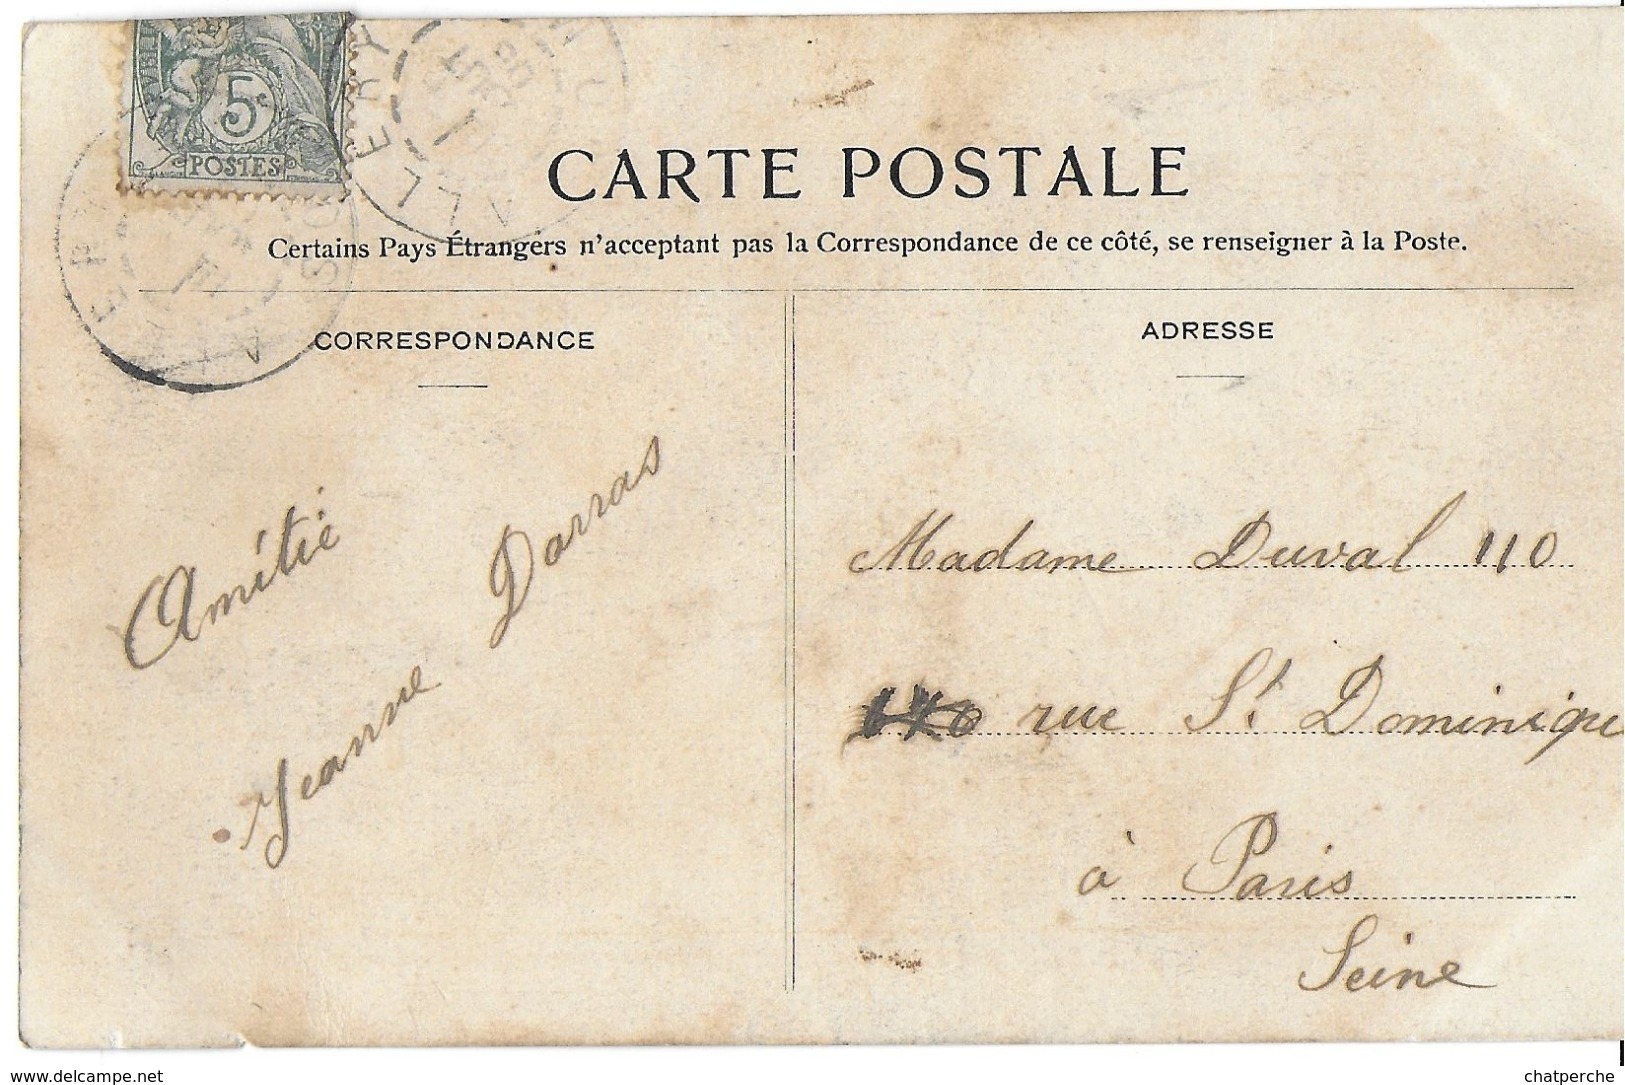 5c
POSTES
CARTE POSTALE
Certains Pays Étrangers n'acceptant pas la Correspondance de ce côté, se renseigner à la Poste.
CORRESPONDANCE
Amitié
Jeanne Darras
ADRESSE
Madame Duval 110
rue St Dominique
à Paris
Seine
www.delcampe.net
chatperche